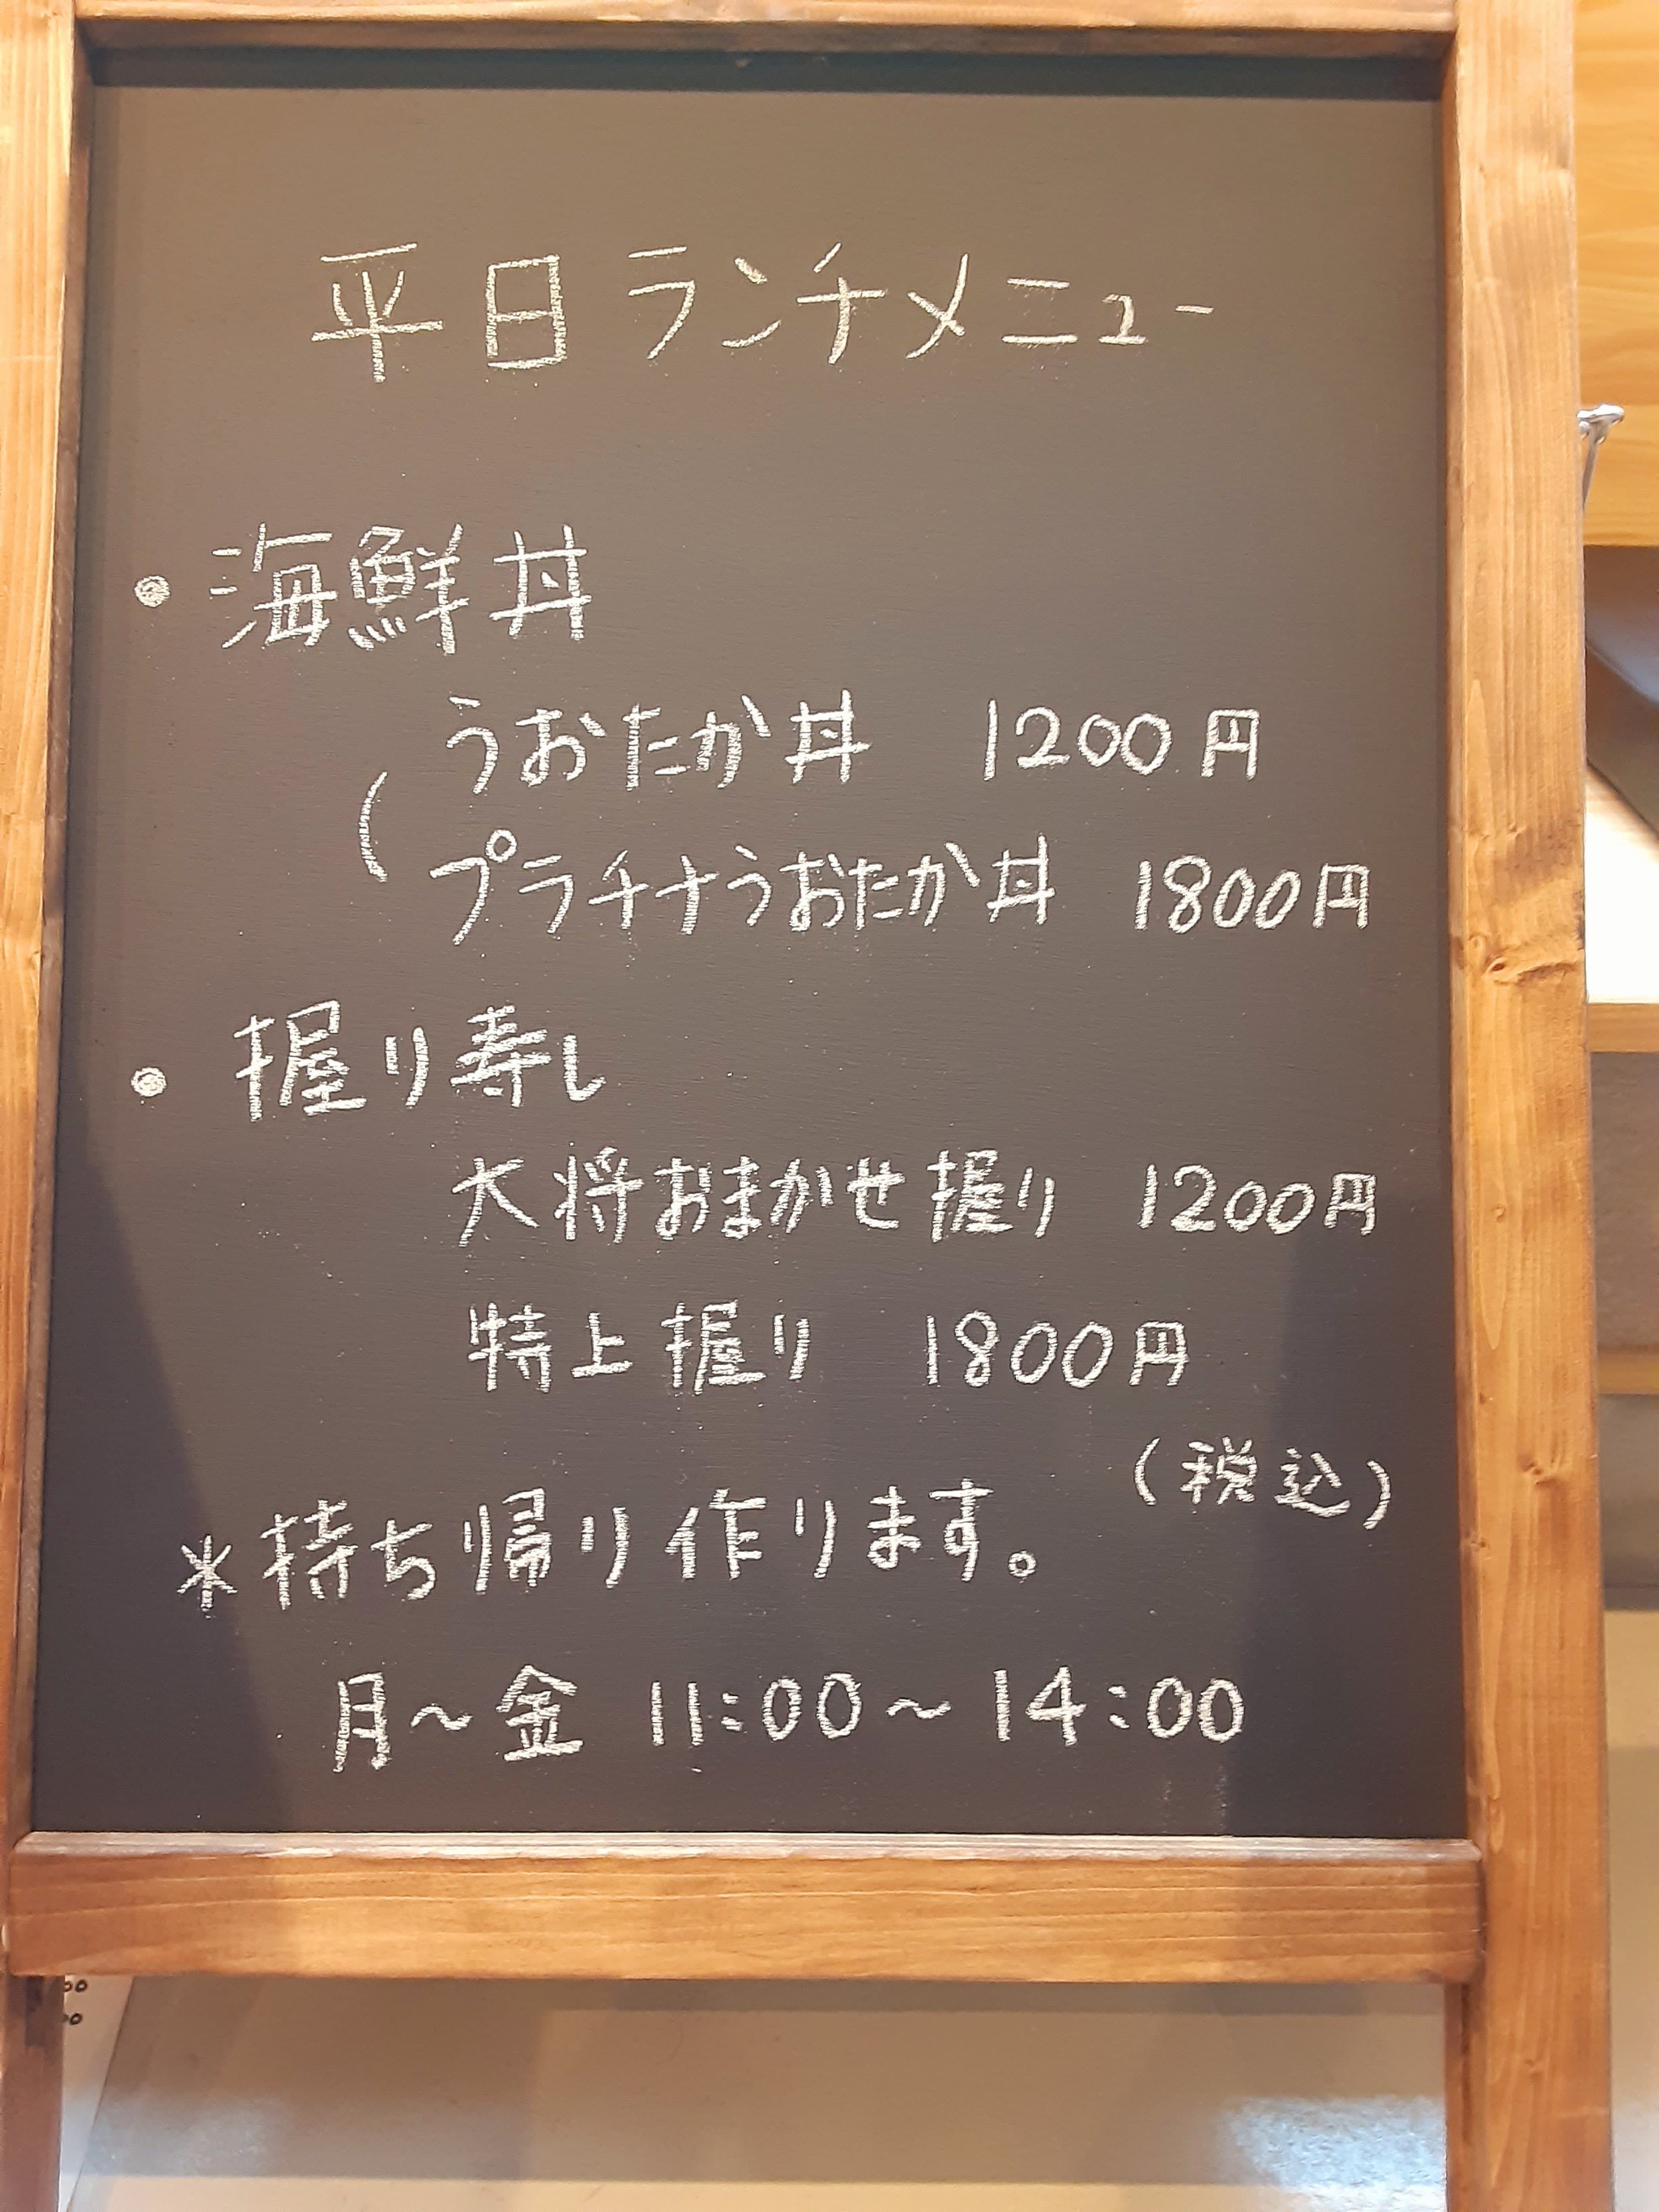 平日ランチメニュー
・海鮮丼
うおたか丼 1200円
(プラチナうおたか丼 1800円
・握り寿し
大将おまかせ握り 1200円
特上握り 1800円
(税込)
*持ち帰り作ります。
月～金 11:00～14:00